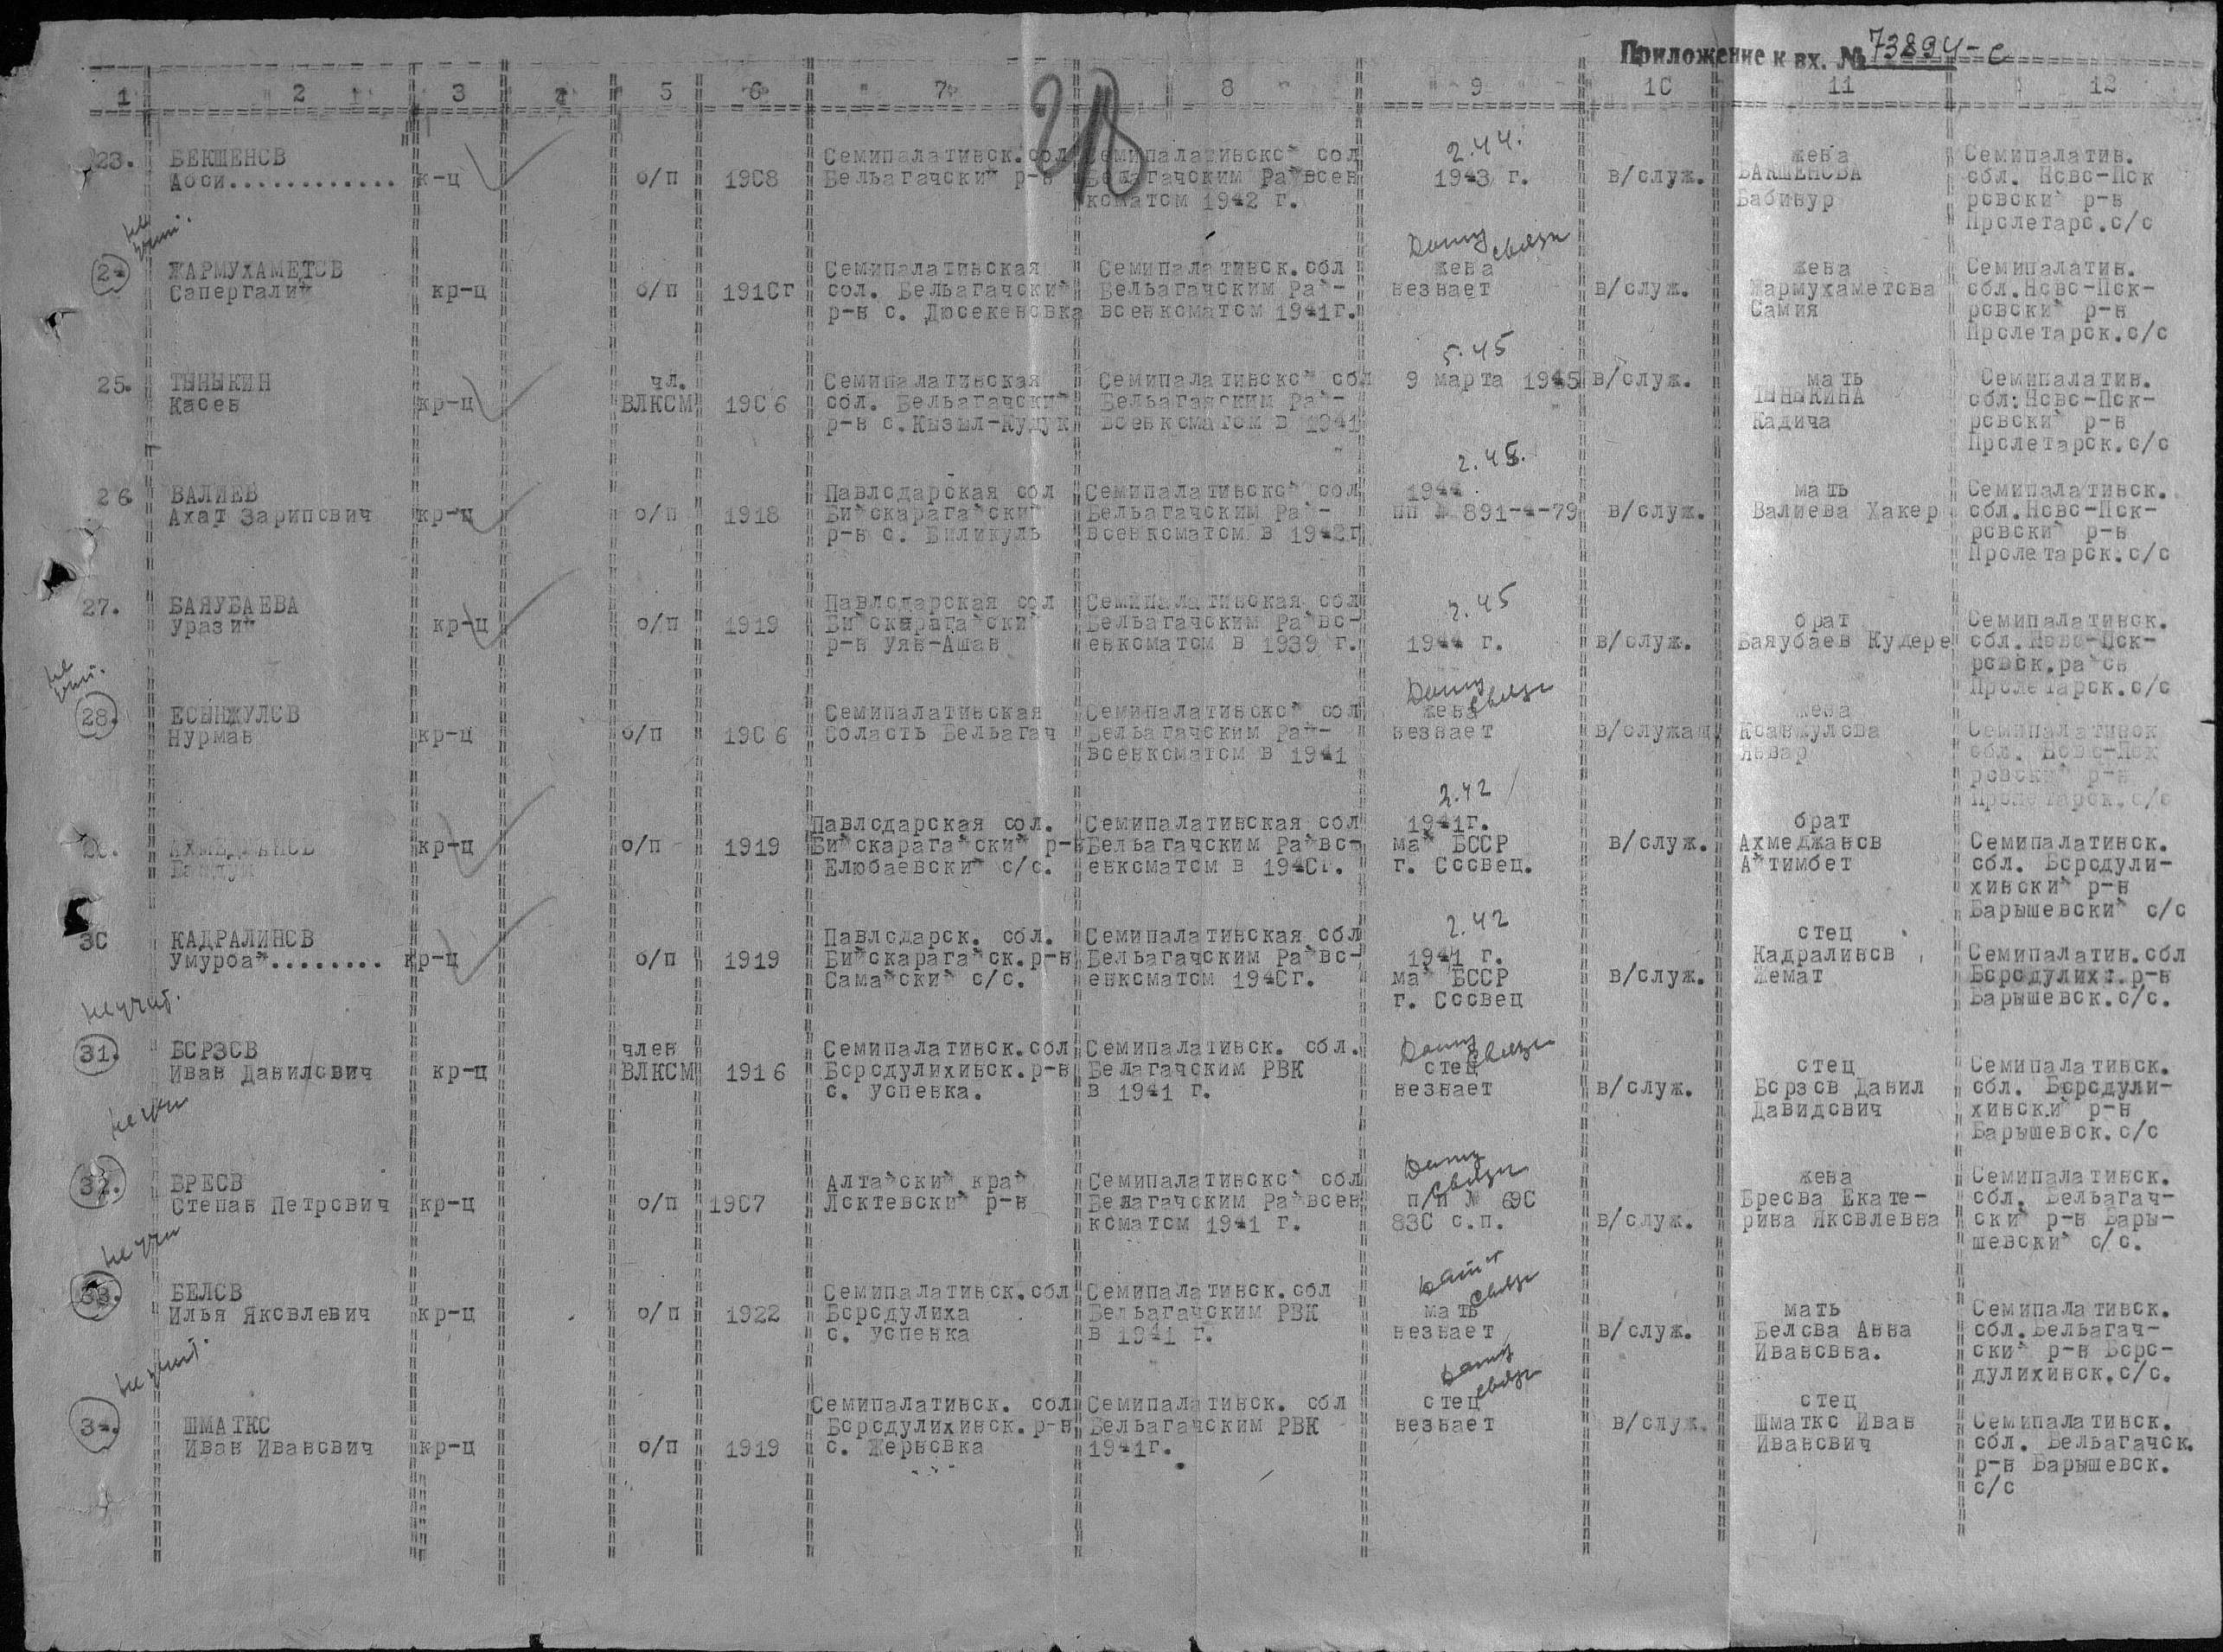 Приложение к вх. № 73894-с
1 2 3 4 5 6 7 8 9 10 11 12
28
23. БЕКШЕНОВ Аоси............ к-ц о/п 1908
Семипалатинск.обл
Бельагачский р-н
Семипалатинской обл
Белагачским Райвоен
коматом 1942 г.
2.44.
1943 г.
в/служ.
жена
БАКШЕНОВА
Бабинур
Семипалатин.
обл. Ново-Пок
ровский р-н
Пролетарс.с/с
24 ЖАРМУХАМЕТОВ
Сапергалий кр-ц о/п 1910г
Семипалатинская
обл. Бельагачский
р-н с. Дюсекеновка
Семипалатинск.обл
Бельагачским Рай-
военкоматом 1941г.
связи
жена
незнает
в/служ.
жена
Жармухаметова
Самия
Семипалатин.
обл.Ново-Пок-
ровский р-н
Пролетарск.с/с
25. ТЫНЫКИН
Касен кр-ц
чл.
ВЛКСМ 1906
Семипалатинская
обл. Бельагачский
р-н с.Кызыл-Кудук
Семипалатинской обл
Бельагачским Рай-
военкоматом в 1941
5.45
9 марта 1945
в/служ.
мать
ТЫНЫКИНА
Кадича
Семипалатин.
обл.Ново-Пок-
ровский р-н
Пролетарск.с/с
26 ВАЛИЕВ
Ахат Зарипович кр-ц о/п 1918
Павлодарская обл
Бийскарагайский
р-н с. Биликуль
Семипалатинской обл
Бельагачским Рай-
военкоматом в 1942г
2.45.
1944
пп № 891-4-79
в/служ.
мать
Валиева Хакер
Семипалатинск.
обл.Ново-Пок-
ровский р-н
Пролетарск.с/с
27. БАЯУБАЕВА
Уразий кр-ц о/п 1919
Павлодарская обл
Бийскарагайский
р-н Уян-Ашан
Семипалатинская обл
Бельагачским Райво-
енкоматом в 1939 г.
2.45
1944 г.
в/служ.
брат
Баяубаев Кудере
Семипалатинск.
обл.Ново-Пок-
ровск.район
Пролетарск.с/с
28. ЕСЫНЖУЛОВ
Нурман кр-ц о/п 1906
Семипалатинская
Область Бельагач
Семипалатинской обл
Бельагачским Рай-
военкоматом в 1941
связи
жена
незнает
в/служащ
жена
Ксанжулова
Январ
Семипалатинск
обл. Ново-Пок
ровский р-н
Пролетарск.с/с
кр-ц о/п 1919
Павлодарская обл.
Бийскарагайский р-н
Елюбаевский с/с.
Семипалатинская обл
Бельагачским Райво-
енкоматом в 1940г.
2.42
1941г.
май БССР
г. Сосвец.
в/служ.
брат
Ахмеджанов
Айтимбет
Семипалатинск.
обл. Бородули-
хинский р-н
Барышевский с/с
30 КАДРАЛИНОВ
Умуроай........ кр-ц о/п 1919
Павлодарск. обл.
Бийскарагайск.р-н
Самайский с/с.
Семипалатинская обл
Бельагачским Райво-
енкоматом 1940г.
2.42
1941 г.
май БССР
г. Сосвец
в/служ.
отец
Кадралинов
Жемат
Семипалатин.обл
Бородулих. р-н
Барышевск.с/с.
31. БОРЗОВ
Иван Данилович кр-ц
член
ВЛКСМ 1916
Семипалатинск.обл
Бородулихинск.р-н
с. Успенка.
Семипалатинск. обл.
Белагачским РВК
в 1941 г.
связи
отец
незнает
в/служ.
отец
Борзов Данил
Давидович
Семипалатинск.
обл. Бородули-
хинский р-н
Барышевск.с/с
32. БРЕСВ
Степан Петрович кр-ц о/п 1907
Алтайский край
Локтевский р-н
Семипалатинской обл
Белагачским Райвоен
коматом 1941 г.
связи
п/п № 690
830 с.п.
в/служ.
жена
Бресва Екате-
рина Яковлевна
Семипалатинск.
обл. Бельагач-
ский р-н Бары-
шевский с/с.
33. БЕЛОВ
Илья Яковлевич кр-ц о/п 1922
Семипалатинск.обл
Бородулиха
с. Успенка
Семипалатинск.обл
Бельагачским РВК
в 1941 г.
связи
мать
незнает
в/служ.
мать
Белова Анна
Ивановна.
Семипалатинск.
обл.Бельагач-
ский р-н Боро-
дулихинск.с/с.
34. ШМАТКО
Иван Иванович кр-ц о/п 1919
Семипалатинск. обл
Бородулихинск.р-н
с. Жерновка
Семипалатинск. обл
Бельагачским РВК
1941г.
связи
отец
незнает
в/служ.
отец
Шматко Иван
Иванович
Семипалатинск.
обл. Бельагачск.
р-н Барышевск.
с/с